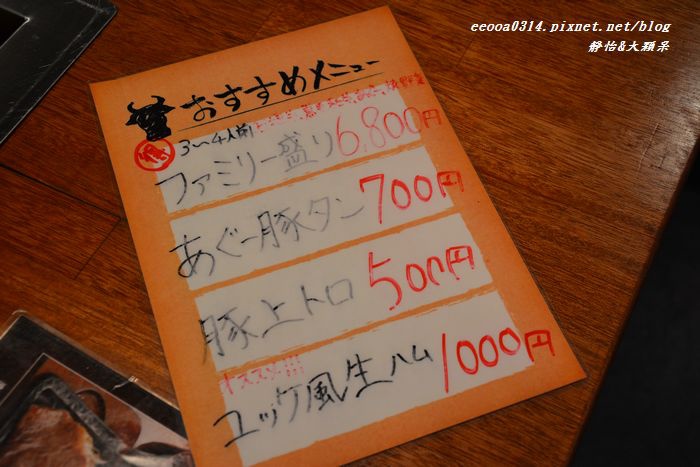 eeooa0314.pixnet.net/blog
靜怡&大顆呆
おすすめメニュー
3〜4人前
ファミリー盛り 6,800円
あぐー豚タン 700円
豚上トロ 500円
オススメ!!!
ユッケ風生ハム 1000円